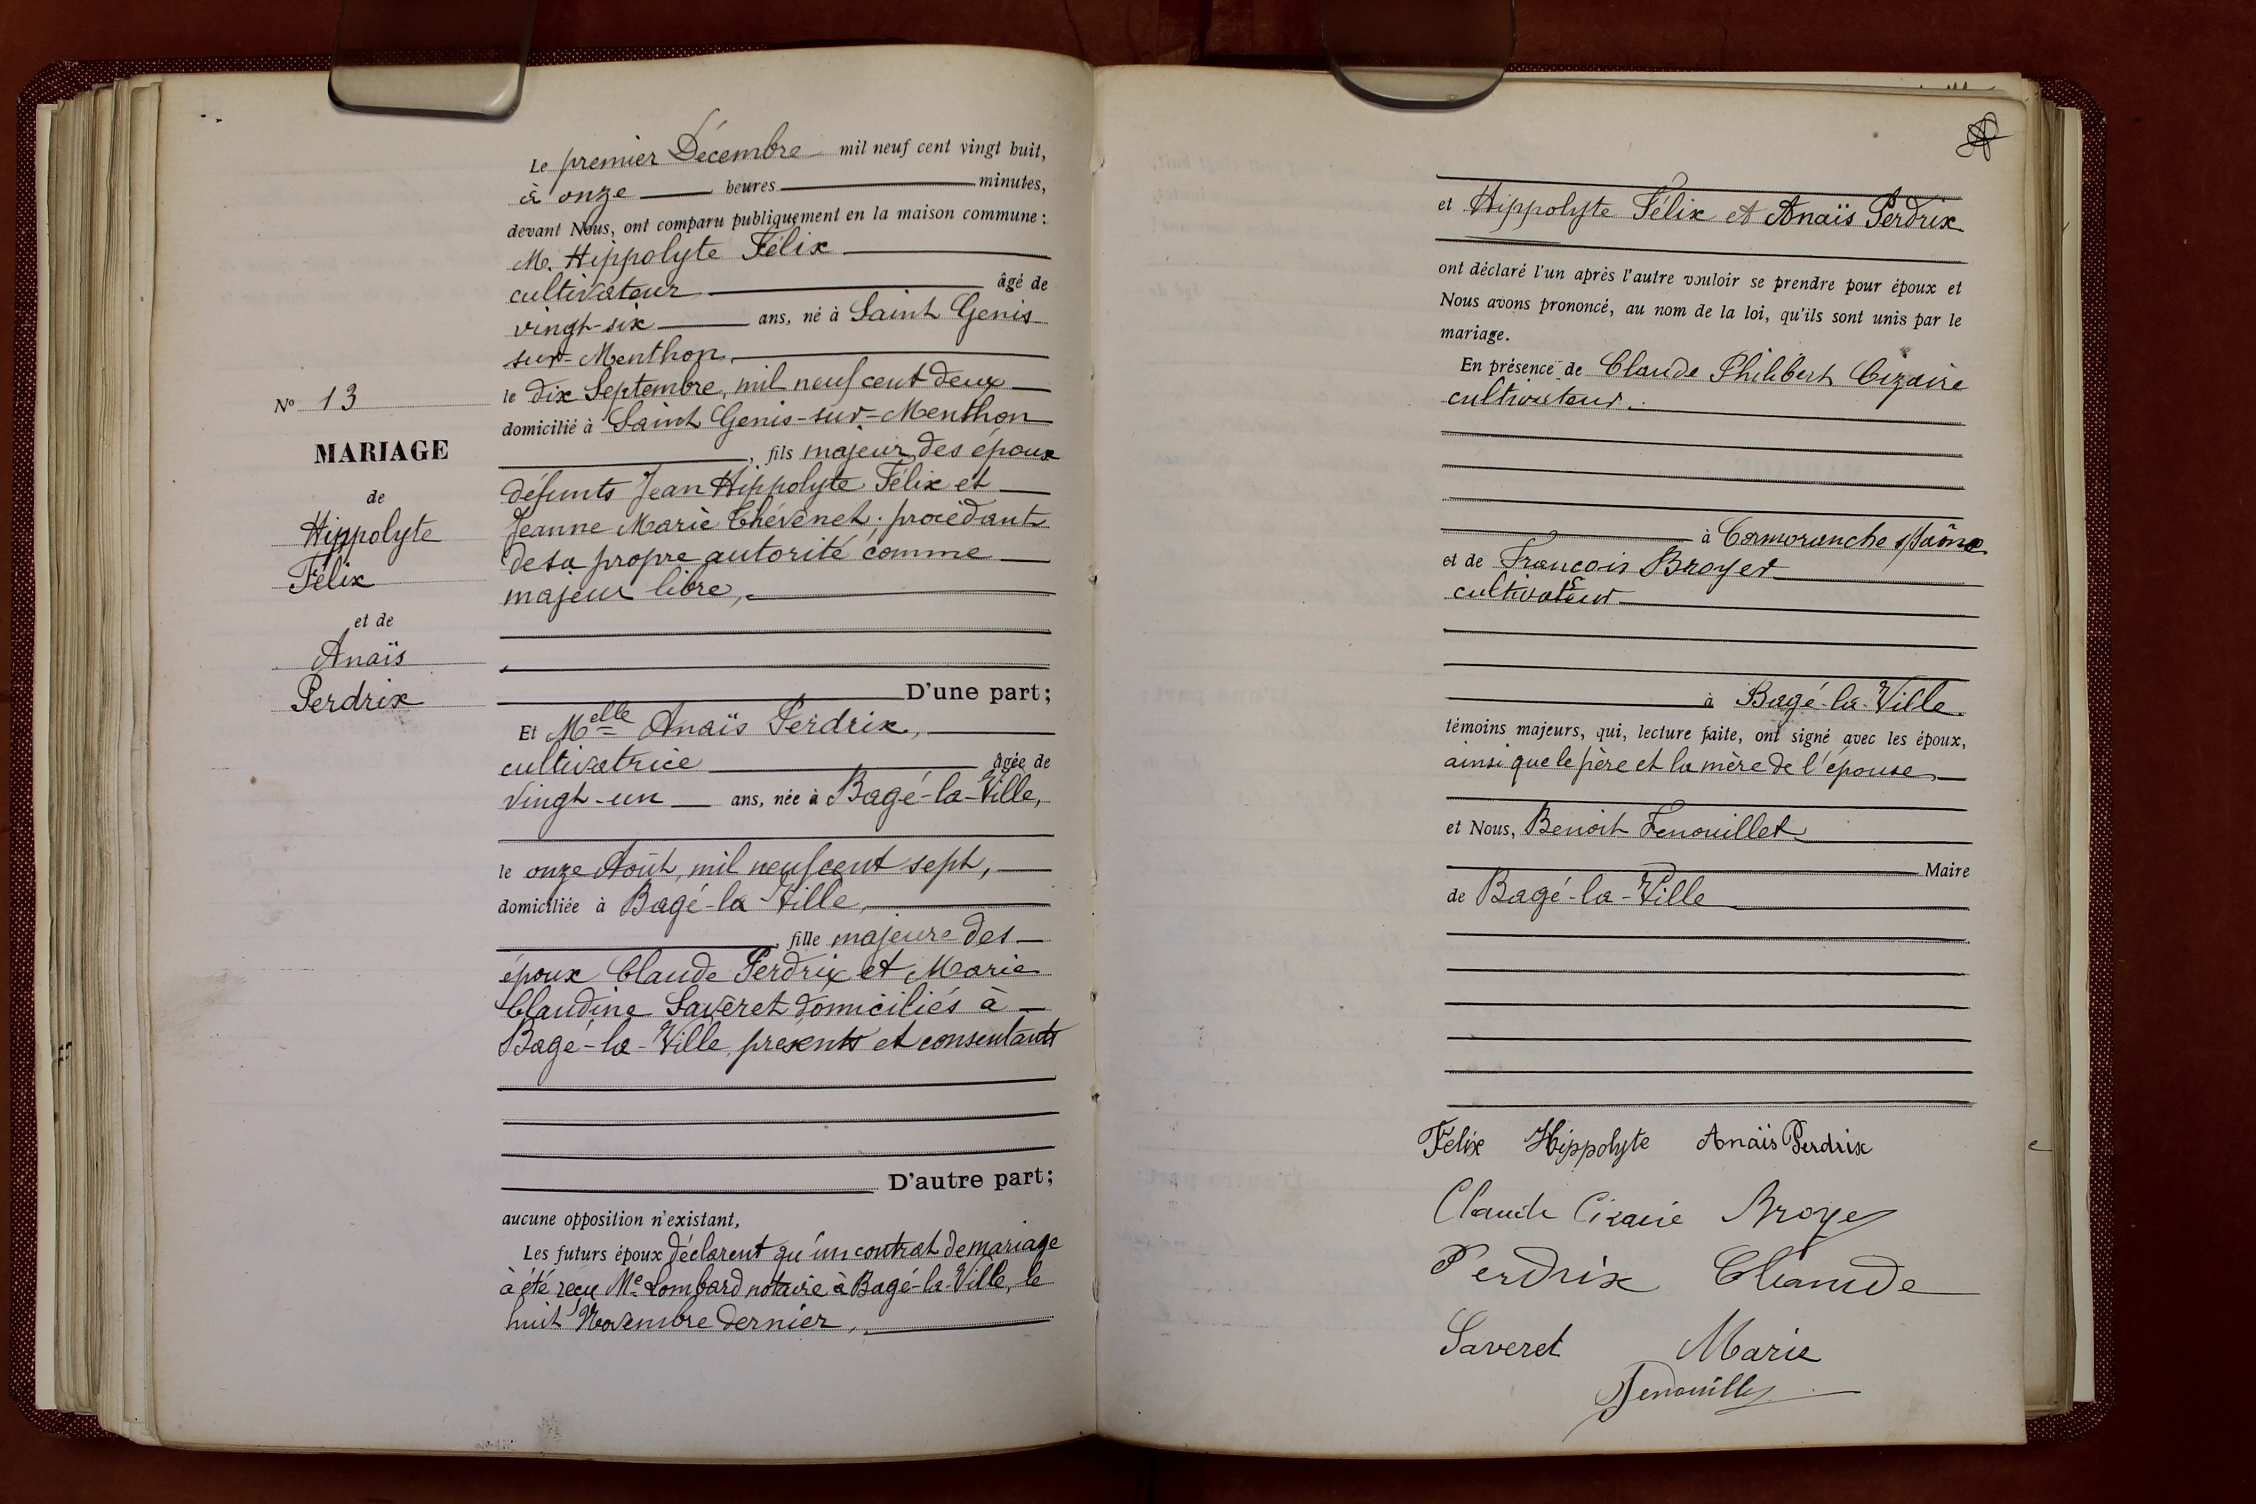 Le premier Décembre mil neuf cent vingt huit,
à onze heures minutes,
devant Nous, ont comparu publiquement en la maison commune :
M. Hippolyte Félix
cultivateur âgé de
vingt-six ans, né à Saint Genis
sur-Menthon,
le dix Septembre, mil neuf cent deux
domicilié à Saint Genis-sur-Menthon
, fils majeur des époux
défunts Jean Hippolyte Félix et
Jeanne Marie Chévenet ; procédant
de sa propre autorité comme
majeur libre,
D'une part ;
Et Melle Anaïs Perdrix,
cultivatrice âgée de
vingt-un ans, née à Bagé-la-Ville,
le onze Août, mil neuf cent sept,
domiciliée à Bagé-la-Ville,
, fille majeure des
époux Claude Perdrix et Marie
Claudine Saveret domiciliés à
Bagé-la-Ville, présents et consentants
D'autre part ;
aucune opposition n'existant,
Les futurs époux déclarent qu'un contrat de mariage
à été reçu Me Lombard notaire à Bagé-la-Ville, le
huit Novembre dernier,
No 13
MARIAGE
de
Hippolyte
Félix
et de
Anaïs
Perdrix
et Hippolyte Félix et Anaïs Perdrix
ont déclaré l'un après l'autre vouloir se prendre pour époux et
Nous avons prononcé, au nom de la loi, qu'ils sont unis par le
mariage.
En présence de Claude Philibert Cizaire
cultivateur.
à Cormoranche s/Saône
et de François Broyer
cultivateur
à Bagé-la-Ville.
témoins majeurs, qui, lecture faite, ont signé avec les époux,
ainsi que le père et la mère de l'épouse,
et Nous, Benoit Fenouillet
Maire
de Bagé-la-Ville
Félix Hippolyte Anaïs Perdrix
Claude Cizaire Broyer
Perdrix Claude
Saveret Marie
Fenouillet